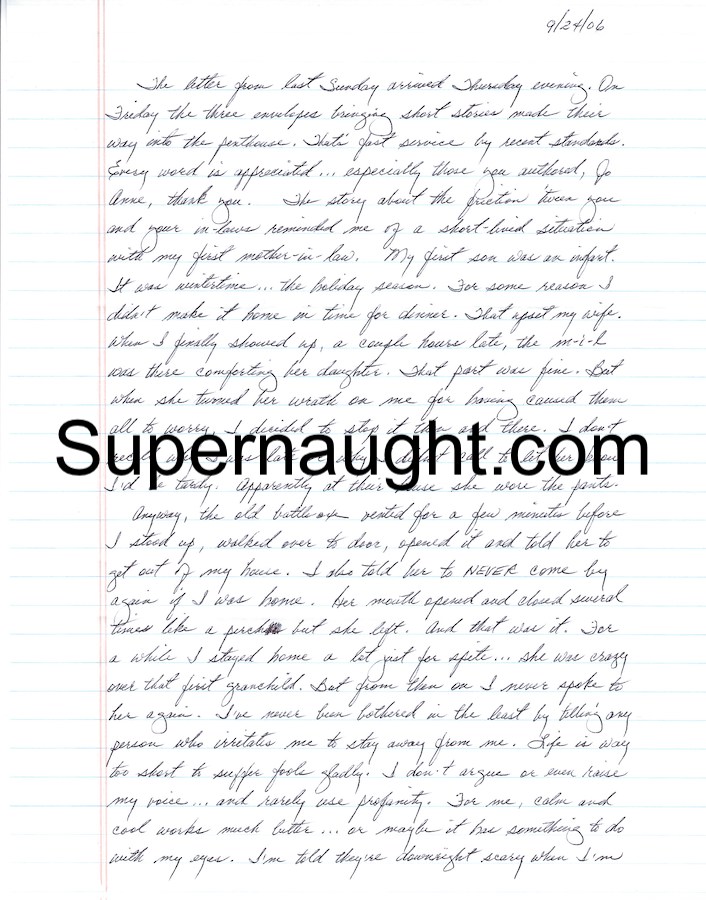 9/24/06
The letter from last Sunday arrived Thursday evening. On
Friday the three envelopes bringing short stories made their
way into the penthouse. That's fast service by recent standards.
Every word is appreciated... especially those you authored, Jo
Anne, thank you. The story about the friction 'tween you
and your in-laws reminded me of a short-lived situation
with my first mother-in-law. My first son was an infant.
It was wintertime... the holiday season. For some reason I
didn't make it home in time for dinner. That upset my wife.
When I finally showed up, a couple hours late, the m-i-l
was there comforting her daughter. That part was fine. But
when she turned her wrath on me for having caused them
all to worry, I decided to stop it then and there. I don't
Supernaught.com
recall why I was late or why I didn't call to let her know
I'd be tardy. Apparently at their house she wore the pants.
Anyway, the old battleaxe vented for a few minutes before
I stood up, walked over to door, opened it and told her to
get out of my house. I also told her to NEVER come by
again if I was home. Her mouth opened and closed several
times like a perch but she left. And that was it. For
a while I stayed home a lot just for spite... she was crazy
over that first granchild. But from then on I never spoke to
her again. I've never been bothered in the least by telling any
person who irritates me to stay away from me. Life is way
too short to suffer fools gladly. I don't argue or even raise
my voice... and rarely use profanity. For me, calm and
cool works much better... or maybe it has something to do
with my eyes. I'm told they're downright scary when I'm